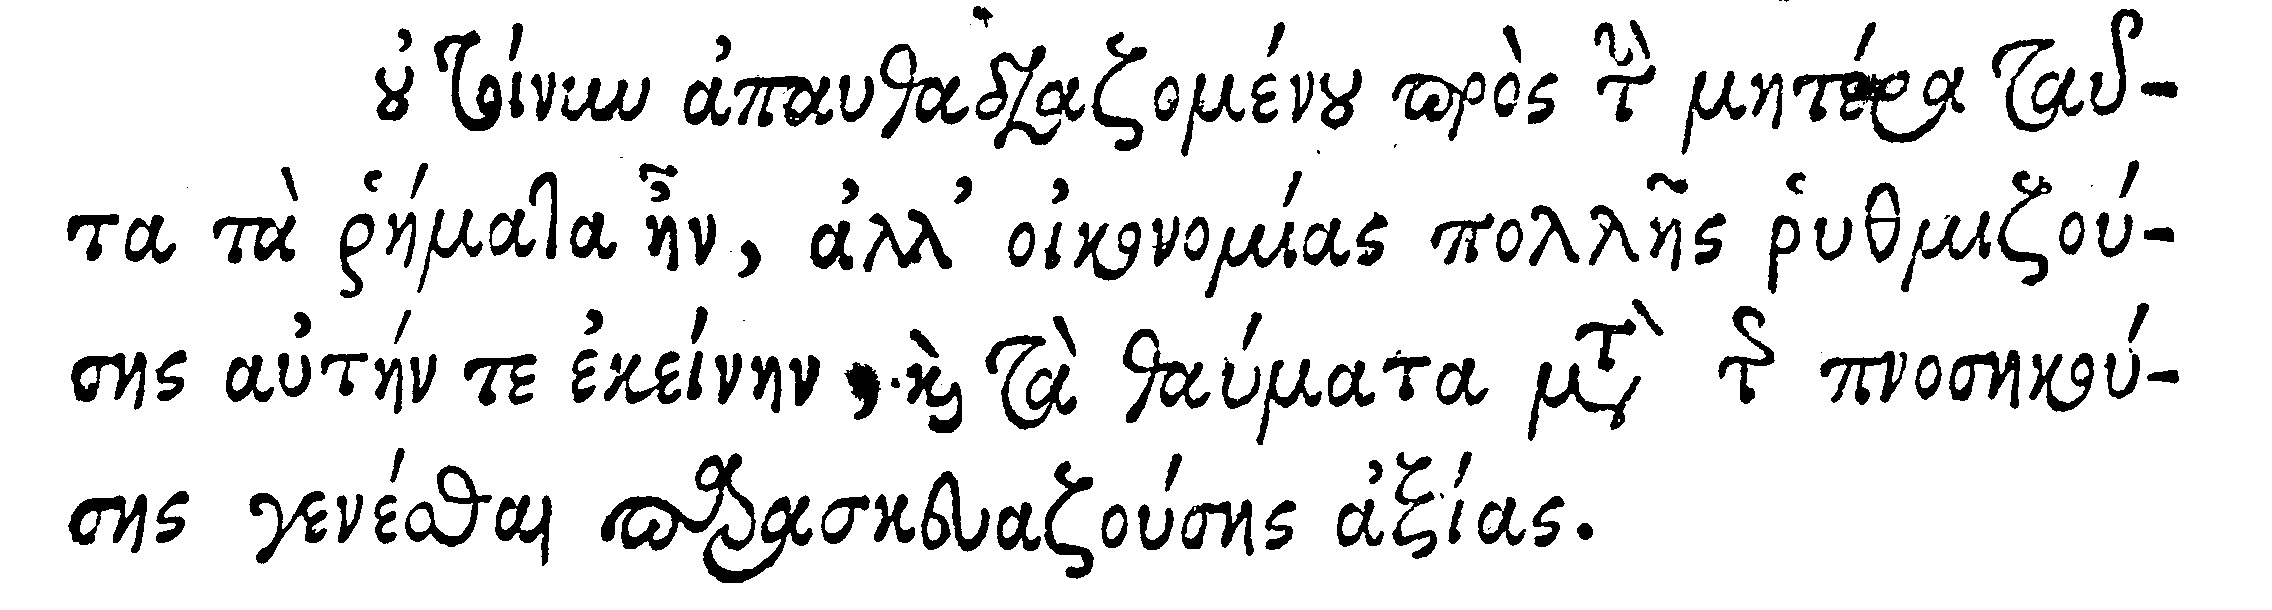 οὐ τοίνυν ἀπαυθαδιαζομένου πρὸς τὴν μητέρα ταῦ-
τα τὰ ῥήματα ἦν, ἀλλ' οἰκονομίας πολλῆς ῥυθμιζού-
σης αὐτήν τε ἐκείνην, καὶ τὰ θαύματα μετὰ τῆς πνοσηκού-
σης γενέσθαι παρασκευαζούσης ἀξίας.